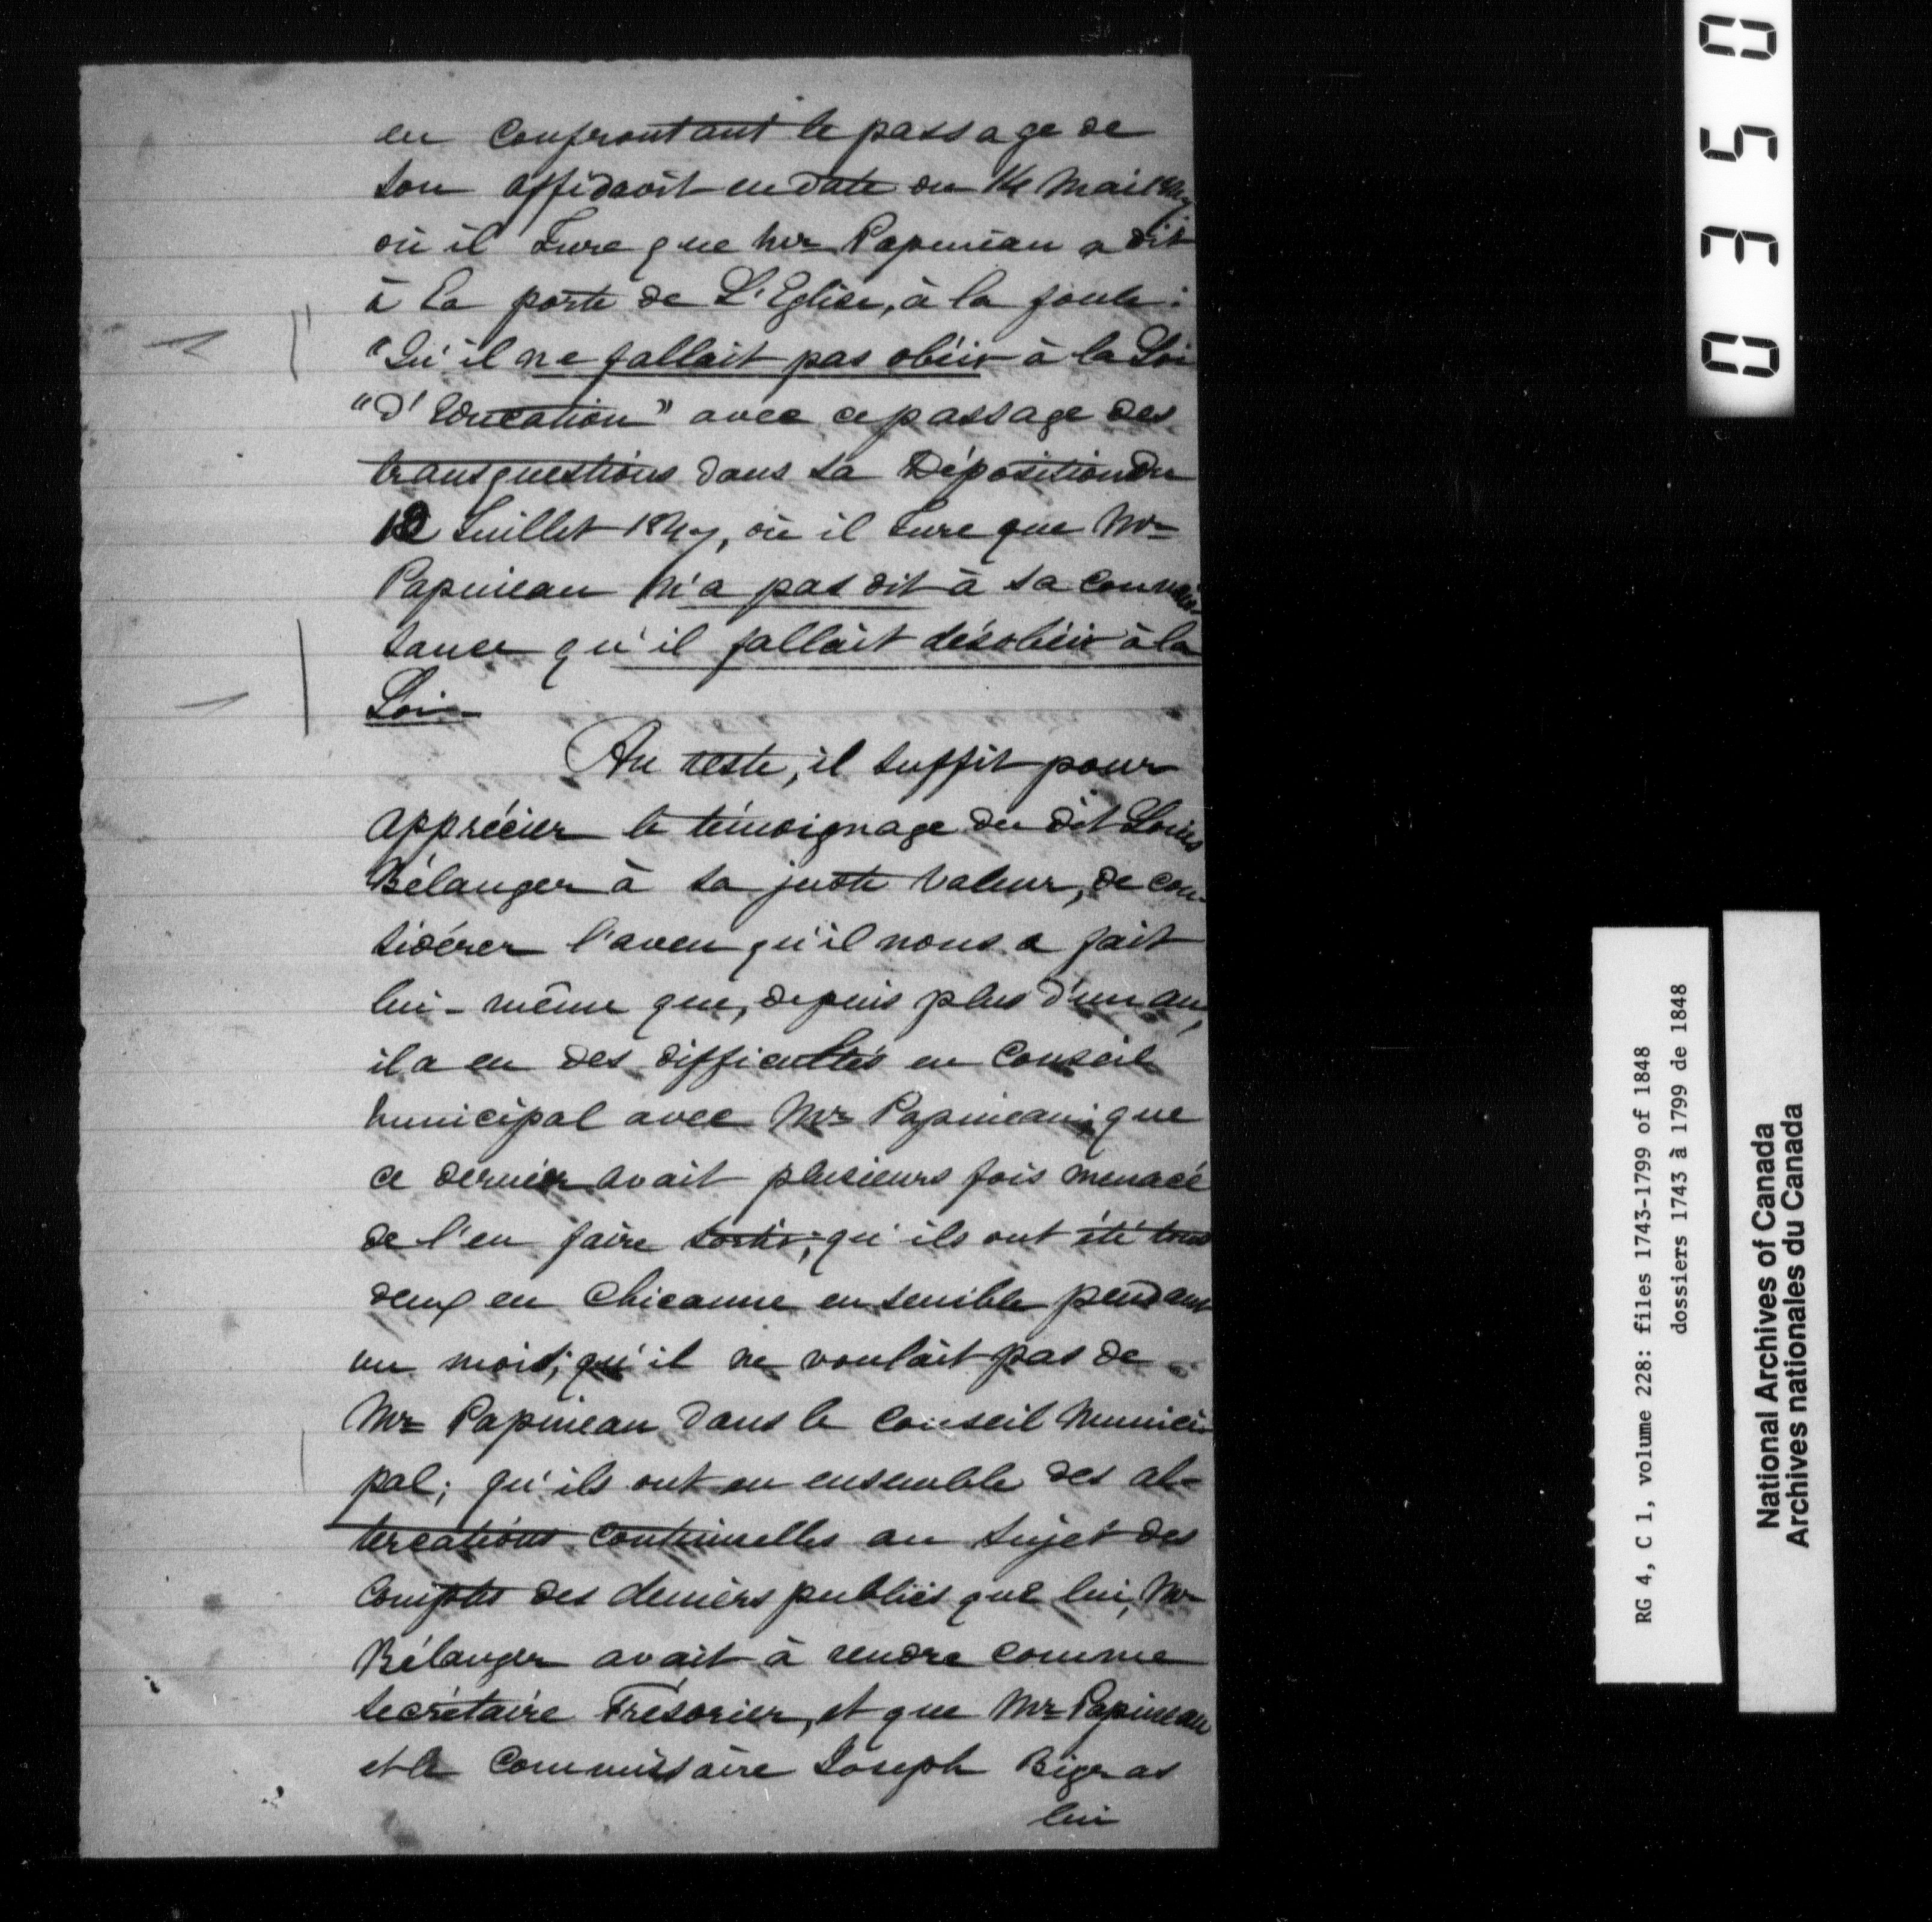 en confrontant le passage de
son affidavit en date du 14 Mai 1847
où il Jure que Mr Papineau a dit
à la porte de L'Eglise, à la foule:
"Qu'il ne fallait pas obéir à la Loi
"D'Education" avec ce passage des
transquestions dans sa Déposition du
12 Juillet 1847, où il Jure que Mr
Papineau n'a pas dit à sa connais
sance qu'il fallait désobéir à la
Loi.
Au reste, il suffit pour
apprécier le témoignage du dit Louis
Bélanger à sa juste valeur, de con-
sidérer l'aveu qu'il nous a fait
lui-même que, depuis plus d'un an,
il a eu des difficultés en Conseil
Municipal avec Mr Papineau; que
ce dernier avait plusieurs fois menacé
de l'en faire sortir; qu'ils ont été tous
deux en Chicanne ensemble pendant
un mois; qu'il ne voulait pas de
Mr Papineau dans le Conseil Munici-
pal; qu'ils ont eu ensemble des al-
tercations continuelles au sujet des
Comptes des deniers publics que lui, Mr
Bélanger avait à rendre comme
Secrétaire Trésorier, et que Mr Papineau
et le Commissaire Joseph Bigras
lui
0350
RG 4, C 1, volume 228: files 1743-1799 of 1848
dossiers 1743 à 1799 de 1848
National Archives of Canada
Archives nationales du Canada